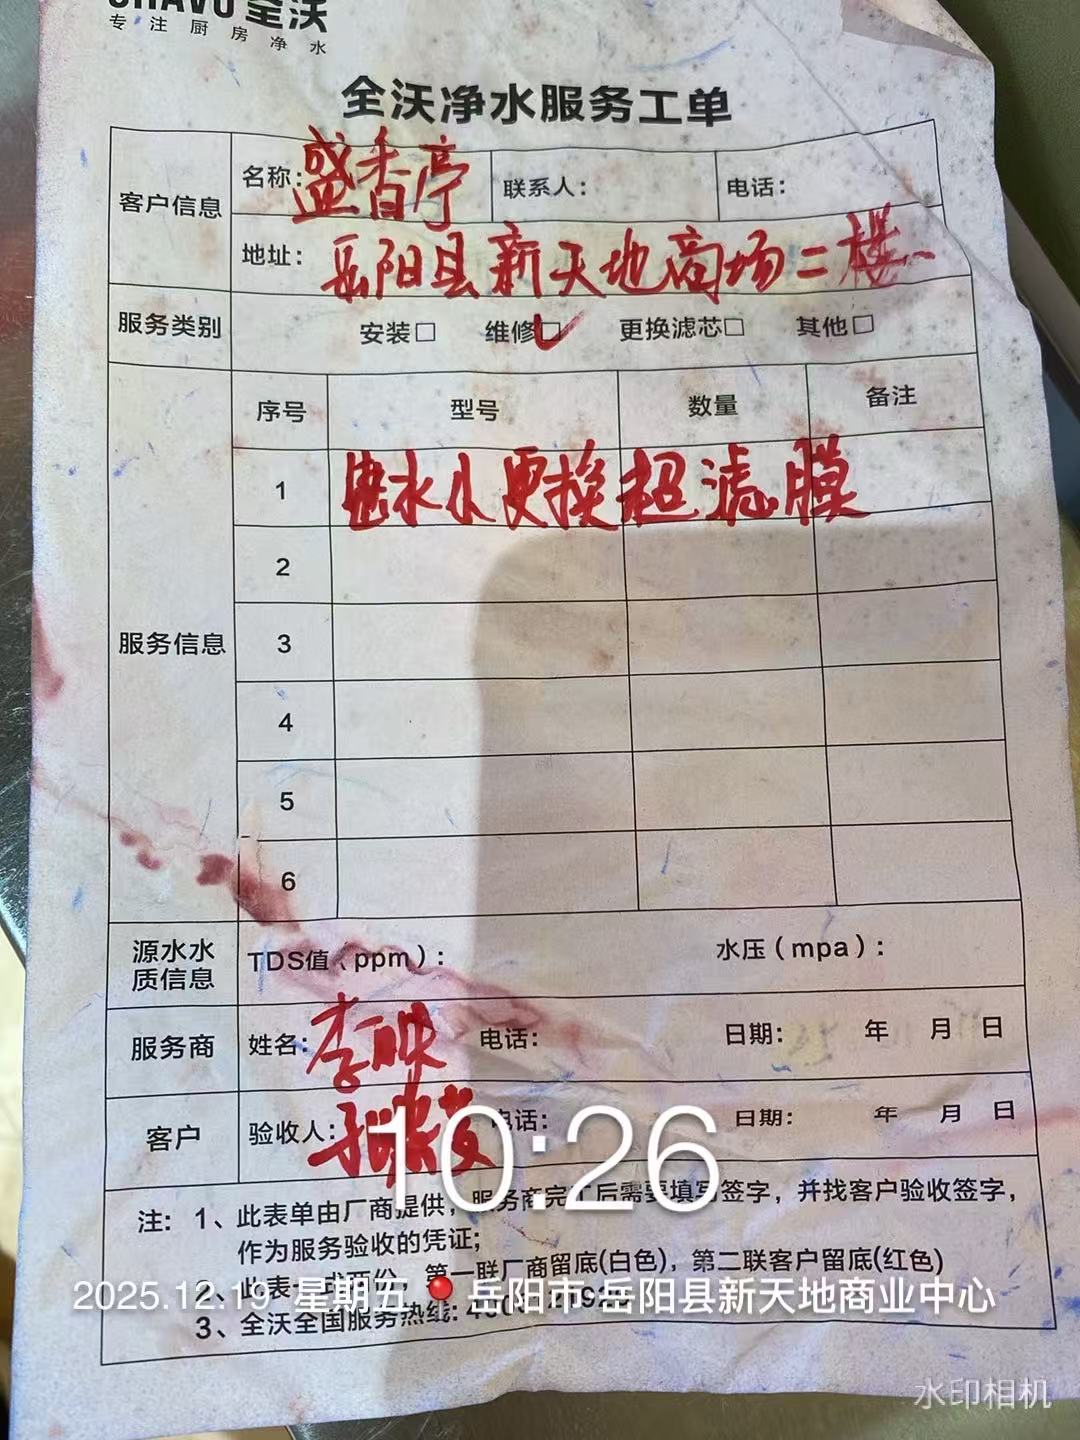 全沃
专注厨房净水
全沃净水服务工单
客户信息
名称：盛香亭
联系人：
电话：
地址：岳阳县新天地商场二楼
服务类别
安装□ 维修□ 更换滤芯□ 其他□
服务信息
序号 型号 数量 备注
1 水 更换超滤膜
2
3
4
5
6
源水水
质信息
TDS值（ppm）：
水压（mpa）：
服务商
姓名：李
电话：
日期： 年 月 日
客户
验收人：
电话：
日期： 年 月 日
10:26
注：1、此表单由厂商提供，服务商完工后需要填写签字，并找客户验收签字，
作为服务验收的凭证；
2、此表一式两份，第一联厂商留底(白色)，第二联客户留底(红色)
3、全沃全国服务热线:
2025.12.19 星期五 岳阳市·岳阳县新天地商业中心
水印相机